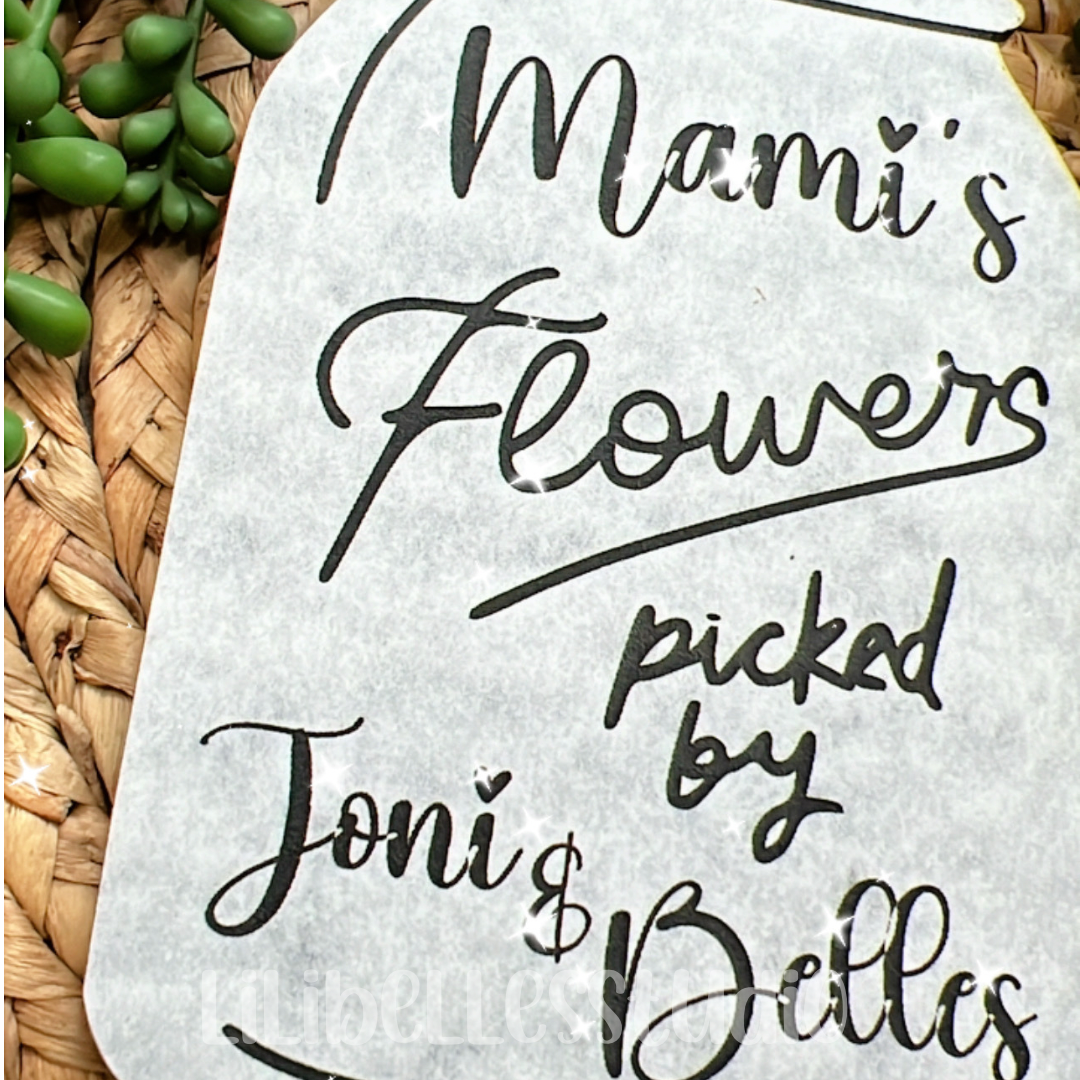 Mami's
Flowers
picked
by
Toni &
Belles
LILIBELLESSTUDIO